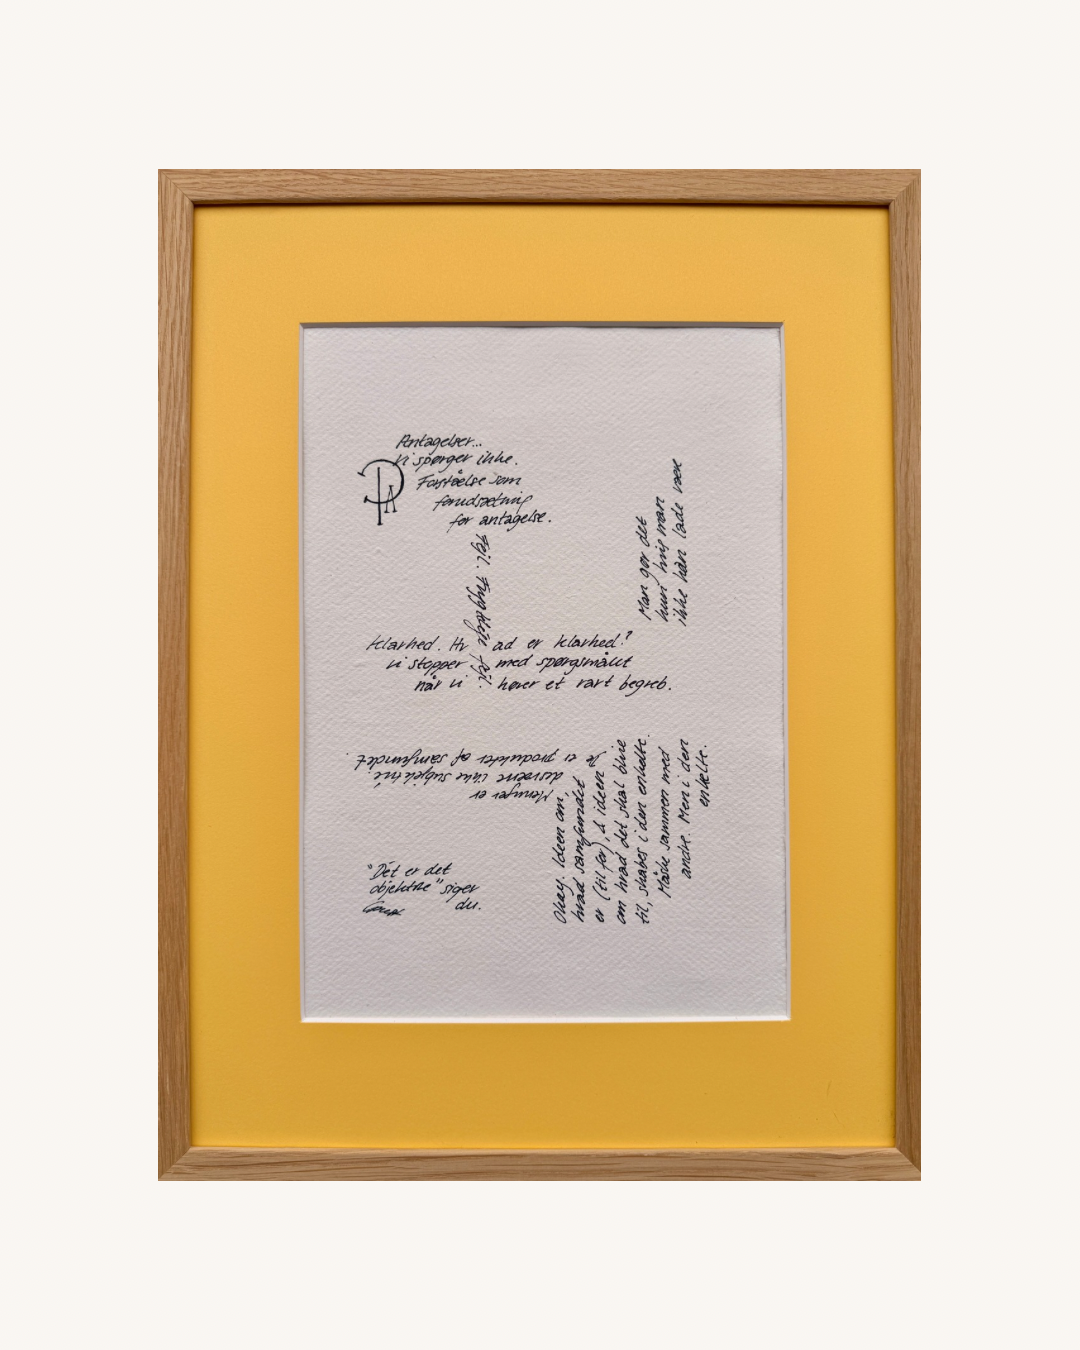 Antagelser...
vi spørger ikke.
Forståelse som
forudsætning
for antagelse.
PA
Fejl. Frygtelig fejl.
Man gør det
kun hvis man
ikke kan lade være
Klarhed. Hvad er klarhed?
vi stopper med spørgsmålet
når vi hører et rart begreb.
Meninger er
desværre ikke subjektive.
De er produkter af samfundet.
Okay. Ideen om,
hvad samfundet
er (til for), & ideen
om hvad det skal blive
til, skabes i den enkelte.
Måske sammen med
andre. Men i den
enkelte.
"Det er det
objektive" siger
du.